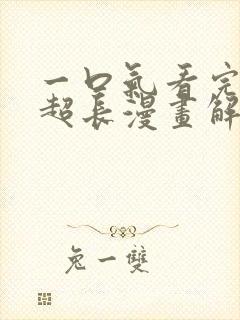 一口氣看完
超長漫畫解
兔一雙